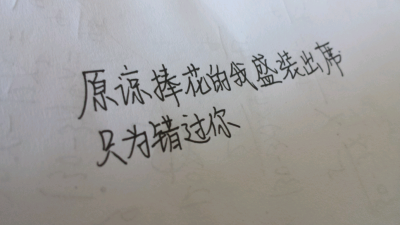 原谅捧花的我盛装出席
只为错过你